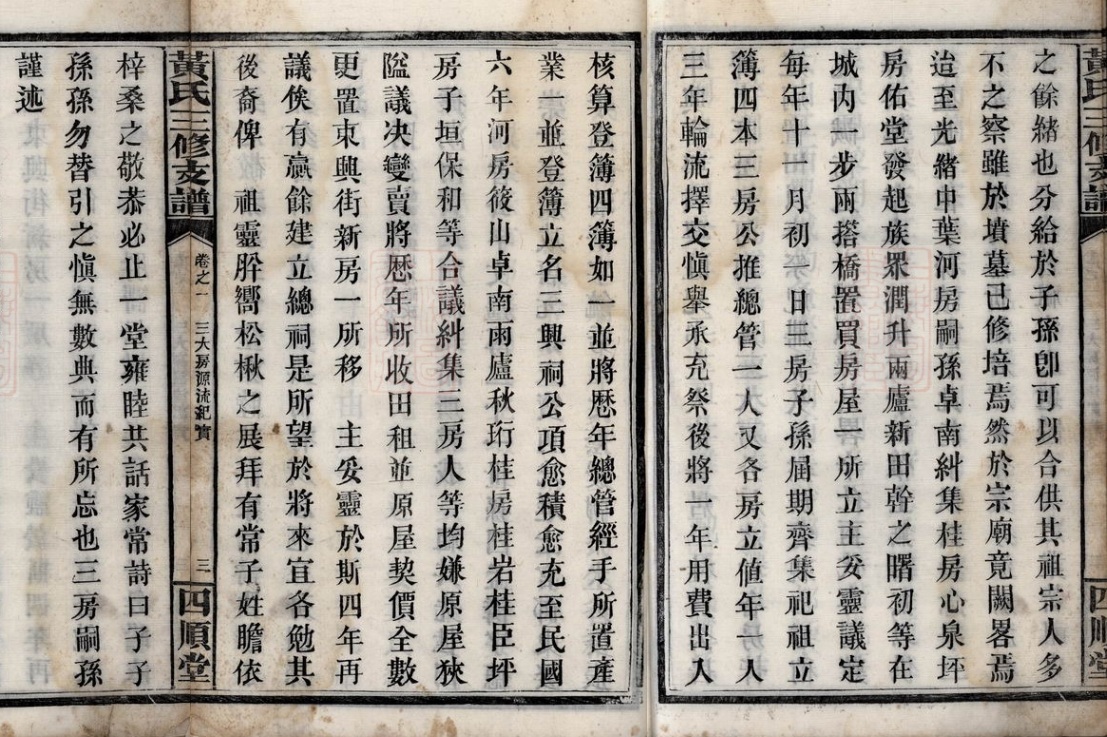 黃氏三修支譜
四順堂
之餘緒也分給於子孫卽可以合供其祖宗人多
不之察雖於墳墓已修培焉然於宗廟竟闕畧焉
迨至光緒中葉河房嗣孫卓南糾集桂房心泉坪
房佑堂發起族眾潤升兩廬新田幹之曙初等在
城內一步兩搭橋置買房屋一所立主妥靈議定
每年十一月初一日三房子孫屆期齊集祀祖立
簿四本三房公推總管一人又各房立值年一人
三年輪流擇交愼舉承充祭後將一年用費出入
核算登簿四簿如一並將歷年總管經手所置產
業一並登簿立名三興祠公項愈積愈充至民國
六年河房筱山卓南雨廬秋珩桂房桂岩桂臣坪
房子垣保和等合議糾集三房人等均嫌原屋狹
隘議决變賣將歷年所收田租並原屋契價全數
更置東興街新房一所移　主妥靈於斯四年再
議俟有贏餘建立總祠是所望於將來宜各勉其
後裔俾　祖靈肸嚮松楸之展拜有常子姓瞻依
黃氏三修支譜
卷之一
三大房源流紀實
三
四順堂
梓桑之敬恭必止一堂雍睦共話家常詩曰子子
孫孫勿替引之愼無數典而有所忘也三房嗣孫
謹述